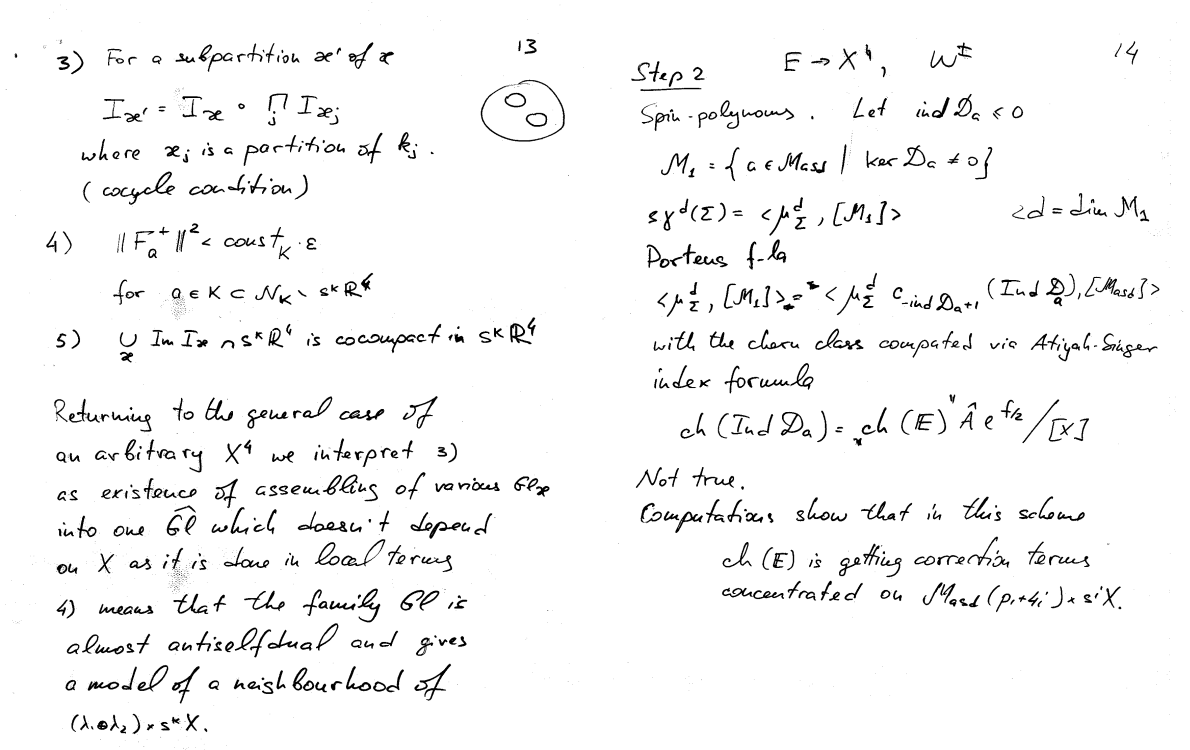 13
3) For a subpartition æ' of æ
I_{æ'} = I_æ ∘ ∏_j I_{æ_j}
where æ_j is a partition of k_j.
(cocycle condition)
4) ‖F_a^+‖² < const_K · ε
for a ∈ K ⊂ N_K \ s^k ℝ⁴
5) ∪_æ Im I_æ ∩ s^k ℝ⁴ is cocompact in s^k ℝ⁴
Returning to the general case of
an arbitrary X⁴ we interpret 3)
as existence of assembling of various Gl_æ
into one Ĝl which doesn't depend
on X as it is done in local terms
4) means that the family Gl is
almost antiselfdual and gives
a model of a neighbourhood of
(λ₁⊕λ₂) × s^k X.
14
Step 2 E → X⁴, W^±
Spin-polynoms. Let ind D_a < 0
M₁ = {a ∈ Masd | ker D_a ≠ 0}
sγ^d(Σ) = <μ_Σ^d, [M₁]> 2d = dim M₁
Porteus f-la
<μ_Σ^d, [M₁]> = <μ_Σ^d c_{-ind D_a+1} (Ind D_a), [Masd]>
with the chern class computed via Atiyah-Singer
index formula
ch (Ind D_a) = ch (𝔼) Â e^{f/2} / [X]
Not true.
Computations show that in this scheme
ch (E) is getting correction terms
concentrated on Masd (p₁+4i) × s^i X.